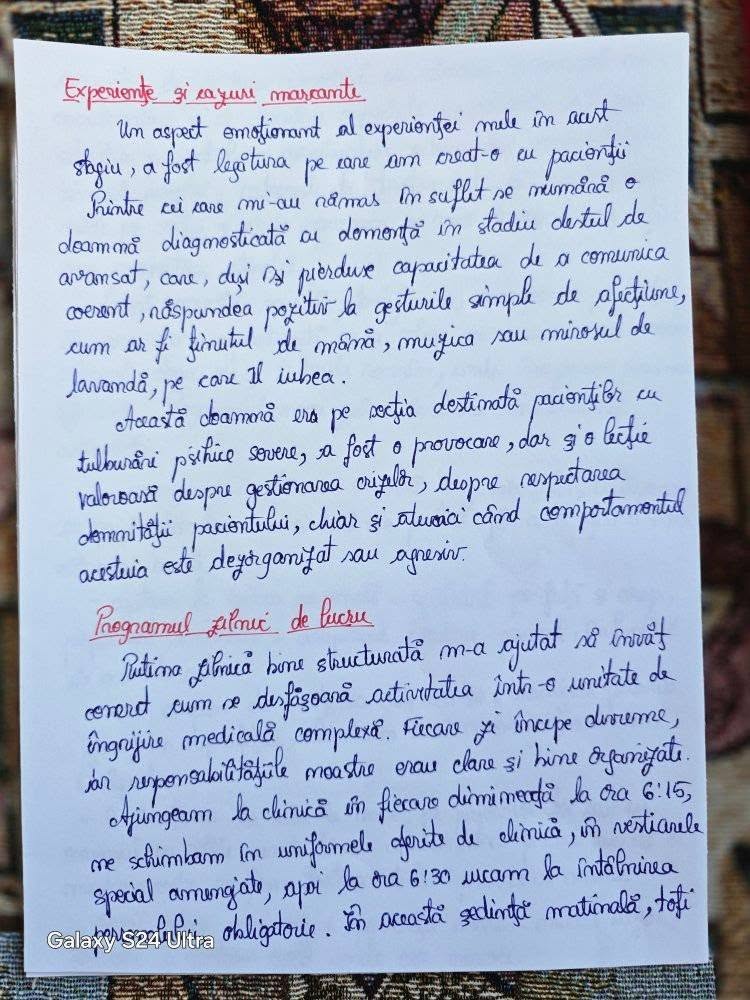 Experiențe și cazuri marcante
Un aspect emoționant al experienței mele în acest
stagiu, a fost legătura pe care am creat-o cu pacienții
Printre cei care mi-au rămas în suflet se numără o
doamnă diagnosticată cu demență în stadiu destul de
avansat, care, deși își pierduse capacitatea de a comunica
coerent, răspundea pozitiv la gesturile simple de afecțiune,
cum ar fi ținutul de mână, muzica sau mirosul de
lavandă, pe care îl iubea.
Această doamnă era pe secția destinată pacienților cu
tulburări psihice severe, a fost o provocare, dar și o lecție
valoroasă despre gestionarea crizelor, despre respectarea
demnității pacientului, chiar și atunci când comportamentul
acestuia este dezorganizat sau agresiv.
Programul zilnic de lucru
Rutina zilnică bine structurată m-a ajutat să învăț
concret cum se desfășoară activitatea într-o unitate de
îngrijire medicală complexă. Fiecare zi începe devreme,
iar responsabilitățile noastre erau clare și bine organizate.
Ajungeam la clinică în fiecare dimineață la ora 6:15,
ne schimbam în uniformele oferite de clinică, în vestiarele
special amenajate, apoi la ora 6:30 urcam la întâlnirea
personalului obligatorie. În această ședință matinală, toți
Galaxy S24 Ultra